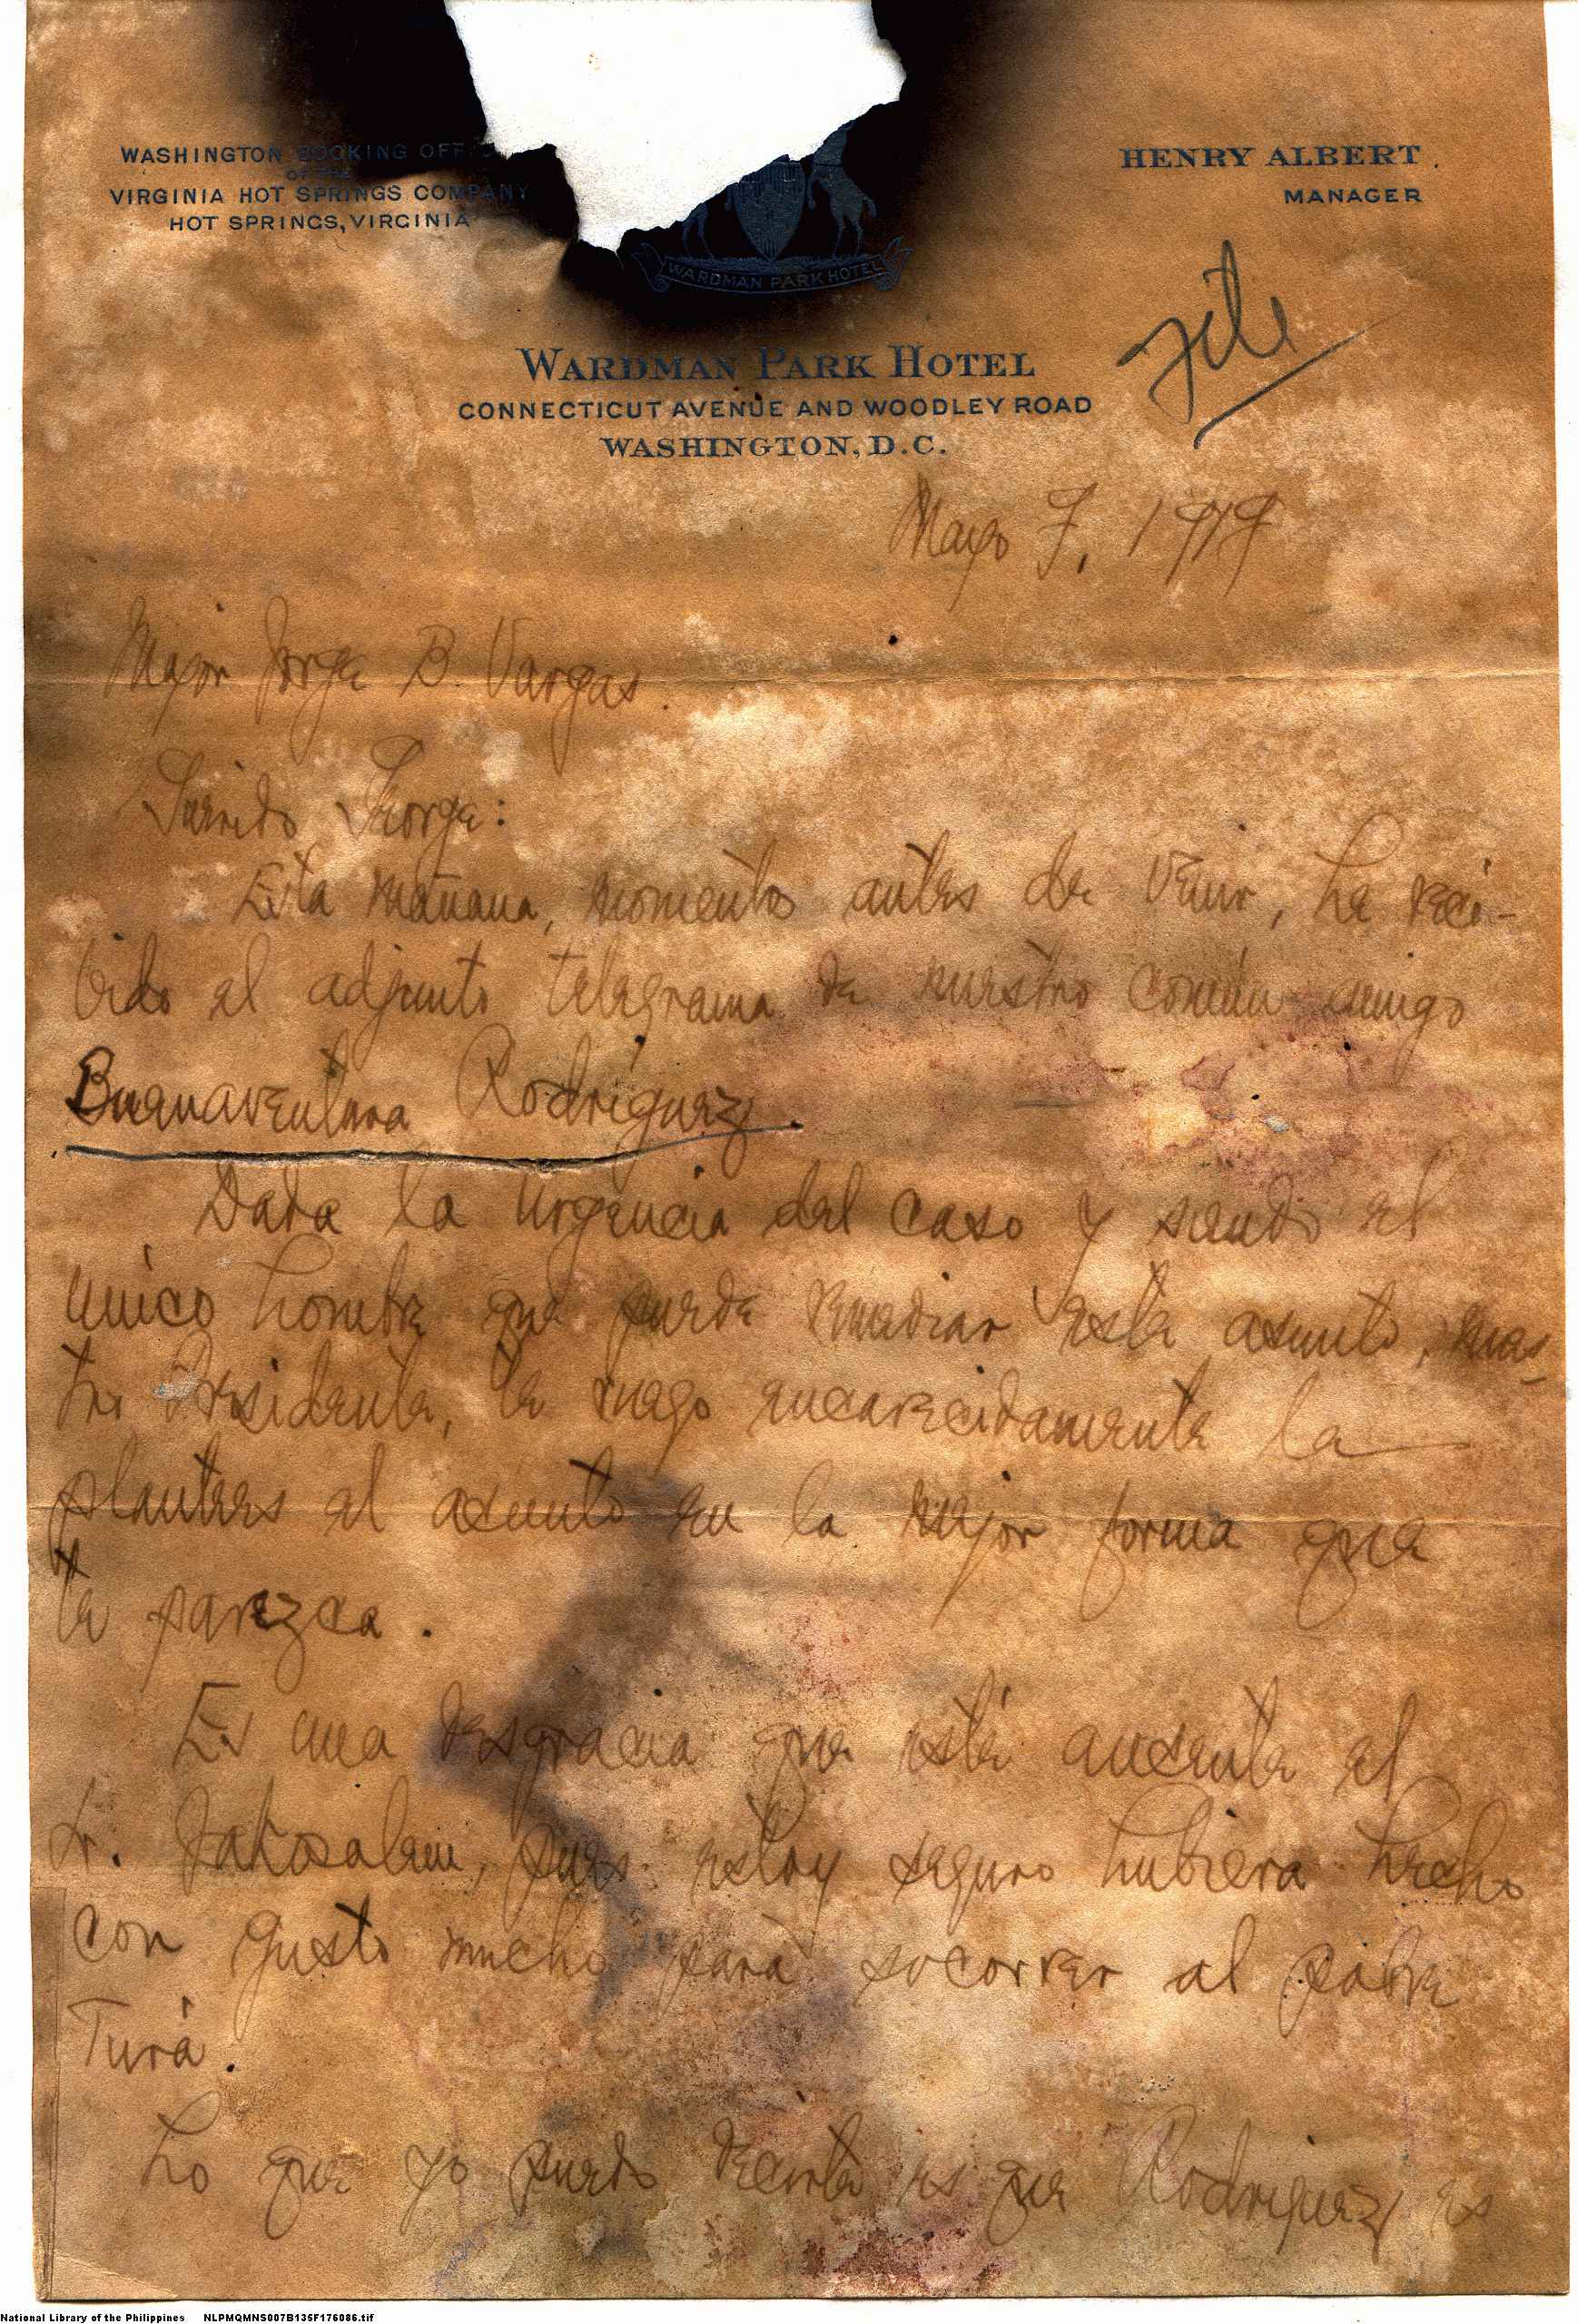 WASHINGTON BOOKING OFFICE
OF THE
VIRGINIA HOT SPRINGS COMPANY
HOT SPRINGS, VIRGINIA
HENRY ALBERT
MANAGER
WARDMAN PARK HOTEL
file
WARDMAN PARK HOTEL
CONNECTICUT AVENUE AND WOODLEY ROAD
WASHINGTON, D.C.
Mayo 7, 1919
Major Jorge B. Vargas.
Querido George:
Esta mañana, momentos antes de venir, he reci-
bido el adjunto telegrama de nuestro común amigo
Buenaventura Rodríguez.
Dada la urgencia del caso y siendo el
único hombre que puede remediar este asunto, nues-
tro Presidente, te ruego encarecidamente le
plantees el asunto en la mejor forma que
te parezca.
Es una desgracia que esté ausente el
Sr. Jakosalem, pues estoy seguro hubiera hecho
con gusto mucho para socorrer al pobre
Turá.
Lo que yo puedo decirte es que Rodriguez es
National Library of the Philippines NLPMQMNS007B135F176086.tif